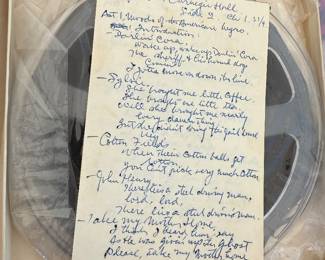 Carnegie Hall
Side 2
Act 1, Moods of the American Negro.
Introduction:
- Darlin' Cora.
Wake up, wake up Darlin' Cora
The sheriff & his hound dog
Comin'
- Sylvie
She brought me little coffee.
She brought me little tea
Well she brought me nearly
every damn thing
But she didn't bring the jail house
key
- Cotton Fields
When Them Cotton balls get
rotton
You Can't pick very much Cotton
- John Henry
There lies a steel driving man,
Lord, Lord,
There lies a steel driving man.
- Take my Mother Home
I think I heard him say
As he was givin up the ghost
Please, take my mother home